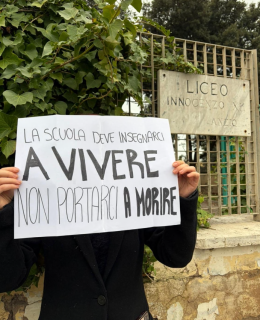 LA SCUOLA DEVE INSEGNARCI
A VIVERE
NON PORTARCI A MORIRE
LICEO
INNOCENZO X